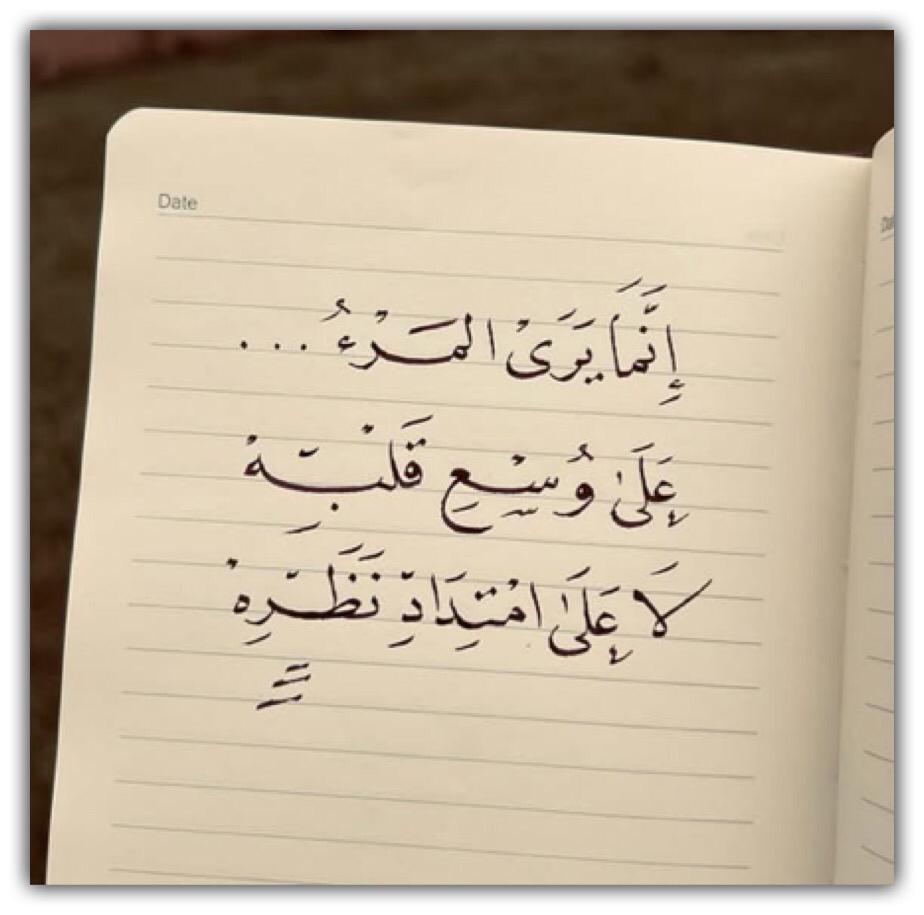 Date
إِنَّمَا يَرَىْ المَرْءُ ...
عَلَىٰ وُسْعِ قَلبِهْ
لَا عَلَىٰ امْتِدَادِ نَظَرِهْ